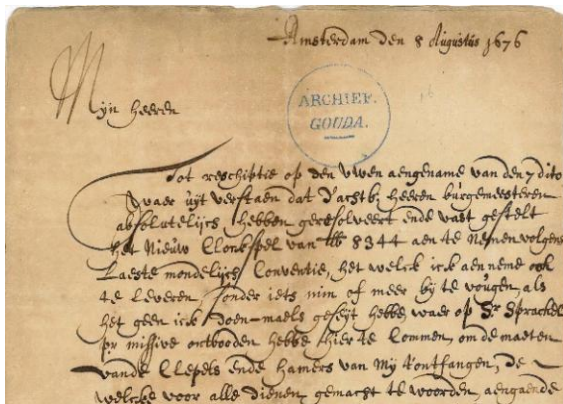 Amsterdam den 8 Augustus 1676
Mijn heeren
ARCHIEF.
GOUDA.
Tot reschiptie op den uwen aengename van den 7 dito
waer uijt verstaen dat d'achtb; heeren burgemeesteren
absolutelijch hebben geresolveert ende vast gestelt
het Nieuw Clockspel van lb 8344 aen te Nemen volgens
Laeste mondelijch Conventie, het welck ick aenneme ook
te leveren sonder iets min of meer by te vougen als
het geen ick doen-maels geseijt hebbe waer op Sr Sprackel
pr missive ontbooden hebbe hier te Commen, om de maeten
vande Clepels ende hamers van Mij t'ontfangen, de
welcke voor alle dienen gemacht te woorden, aengaende